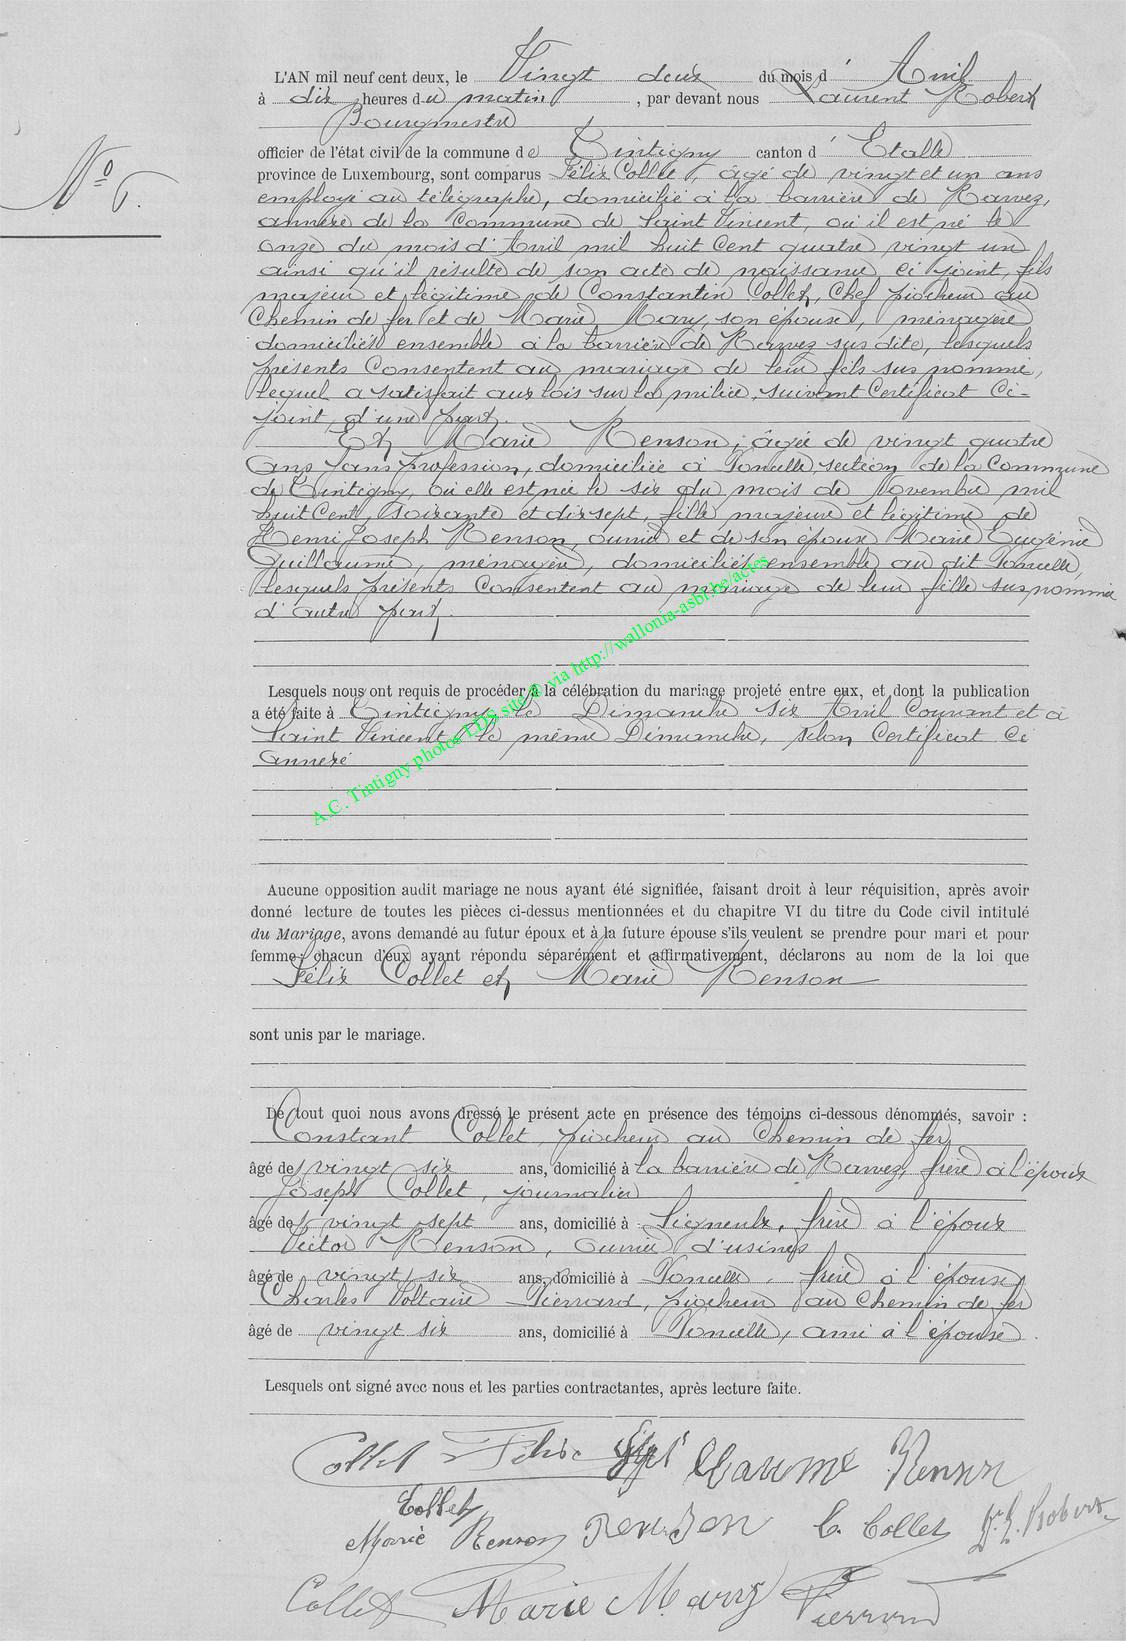 L'AN mil neuf cent deux, le Vingt deux du mois d' Avril
à dix heures du matin, par devant nous Laurent Robert
Bourgmestre
officier de l'état civil de la commune de Tintigny canton d' Etalle
N° 6.
province de Luxembourg, sont comparus Félix Collet, âgé de vingt et un ans
employé au télégraphe, domicilié à la barrière de Harvez,
annexe de la Commune de Saint Vincent, où il est né le
onze du mois d'Avril mil huit Cent quatre vingt un
ainsi qu'il résulte de son acte de naissance ci joint, fils
majeur et légitime de Constantin Collet, Chef piocheur au
Chemin de fer et de Marie Mary, son épouse, ménagère
domiciliés ensemble à la barrière de Harvez sus dite, lesquels
présents Consentent au mariage de leur fils sus nommé,
lequel a satisfait aux lois sur la milice, suivant Certificat Ci-
joint, d'une part.
Et Marie Renson, âgée de vingt quatre
Ans sans profession, domiciliée à Poncelle, section de la Commune
de Tintigny, où elle est née le six du mois de Novembre mil
huit Cent soixante et dix sept, fille majeure et légitime de
Henri Joseph Renson, ouvrier et de son épouse Marie Eugénie
Guillaume, ménagère, domiciliés ensemble au dit Poncelle,
lesquels présents Consentent au mariage de leur fille sus nommée
d'autre part.
Lesquels nous ont requis de procéder à la célébration du mariage projeté entre eux, et dont la publication
a été faite à Tintigny le Dimanche six Avril Courant et à
Saint Vincent le même Dimanche, selon Certificat Ci
annexé
A.C. Tintigny photos LDS site @ via http://wallonia-asbl.be/actes
Aucune opposition audit mariage ne nous ayant été signifiée, faisant droit à leur réquisition, après avoir
donné lecture de toutes les pièces ci-dessus mentionnées et du chapitre VI du titre du Code civil intitulé
du Mariage, avons demandé au futur époux et à la future épouse s'ils veulent se prendre pour mari et pour
femme; chacun d'eux ayant répondu séparément et affirmativement, déclarons au nom de la loi que
Félix Collet et Marie Renson
sont unis par le mariage.
De tout quoi nous avons dressé le présent acte en présence des témoins ci-dessous dénommés, savoir :
Constant Collet, piocheur au Chemin de fer
âgé de vingt six ans, domicilié à la barrière de Harvez, frère à l'époux
Joseph Collet, journalier
âgé de vingt sept ans, domicilié à Signeulx, frère à l'époux
Victor Renson, Ouvrier d'usines
âgé de vingt six ans, domicilié à Poncelle, frère à l'épouse
Charles Voltaire Pierrard, piocheur au Chemin de fer
âgé de vingt six ans, domicilié à Poncelle, ami à l'épouse.
Lesquels ont signé avec nous et les parties contractantes, après lecture faite.
Collet Félix Renson
Collet
Marie Renson Renson C. Collet L. Robert
Collet Marie Mary Pierrard